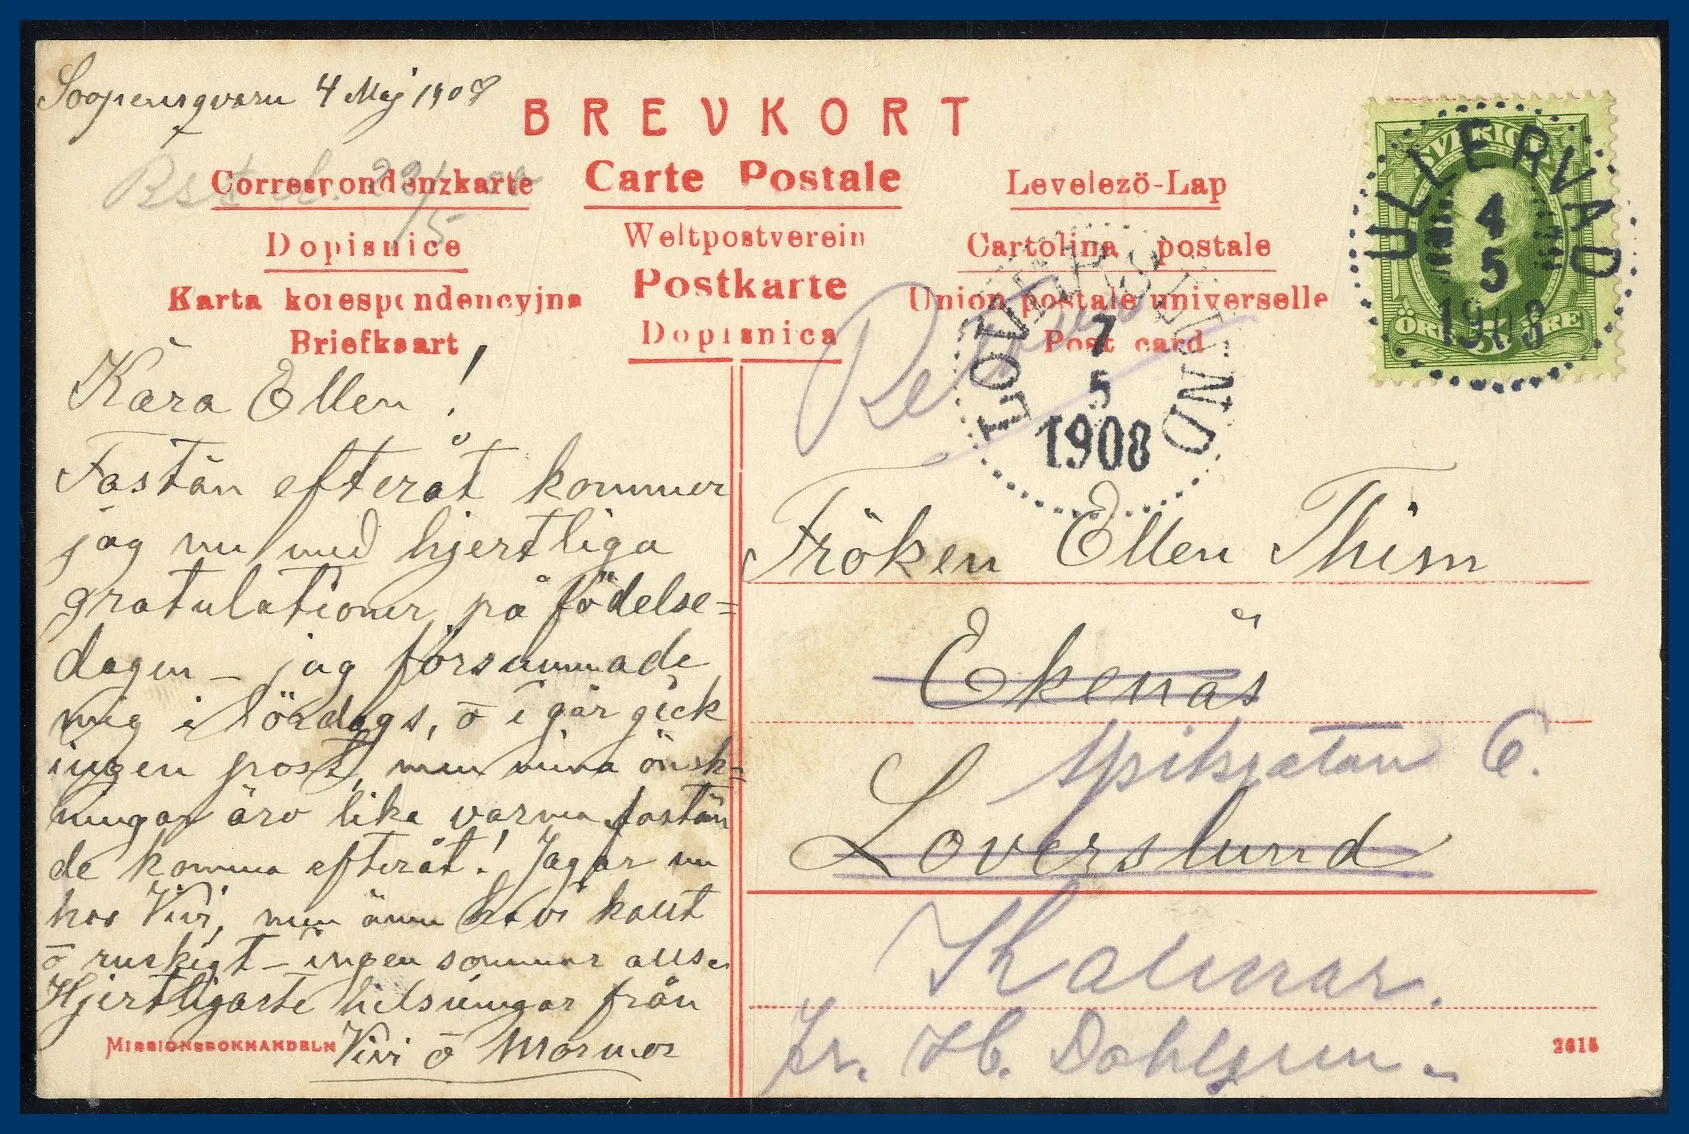 4 Maj 1908
BREVKORT
Correspondenzkarte
Carte Postale
Levelezö-Lap
Dopisnice
Weltpostverein
Cartolina postale
Karta korespondencyjna
Postkarte
Union postale universelle
Briefkaart
Dopisnica
Post card
SVERIGE
ÖRE 5 ÖRE
ULLERVAD
4
5
1908
7
5
1908
Kära Ellen!
Fastän efteråt kommer
jag nu med hjertliga
gratulationer på födelse=
dagen – jag försummade
mig i lördags, o i går gick
ingen post, men mina önsk=
ningar äro lika varma fastän
de komma efteråt! Jag är nu
hos Vivi, men ännu ha vi kallt
o ruskigt – ingen sommar
Hjertligaste helsningar från
Vivi o Mormor
Fröken Ellen Thism
Ekenäs
6.
Loverslund
Kalmar.
H. Dahlgren
MISSIONSBOKHANDELN
2615